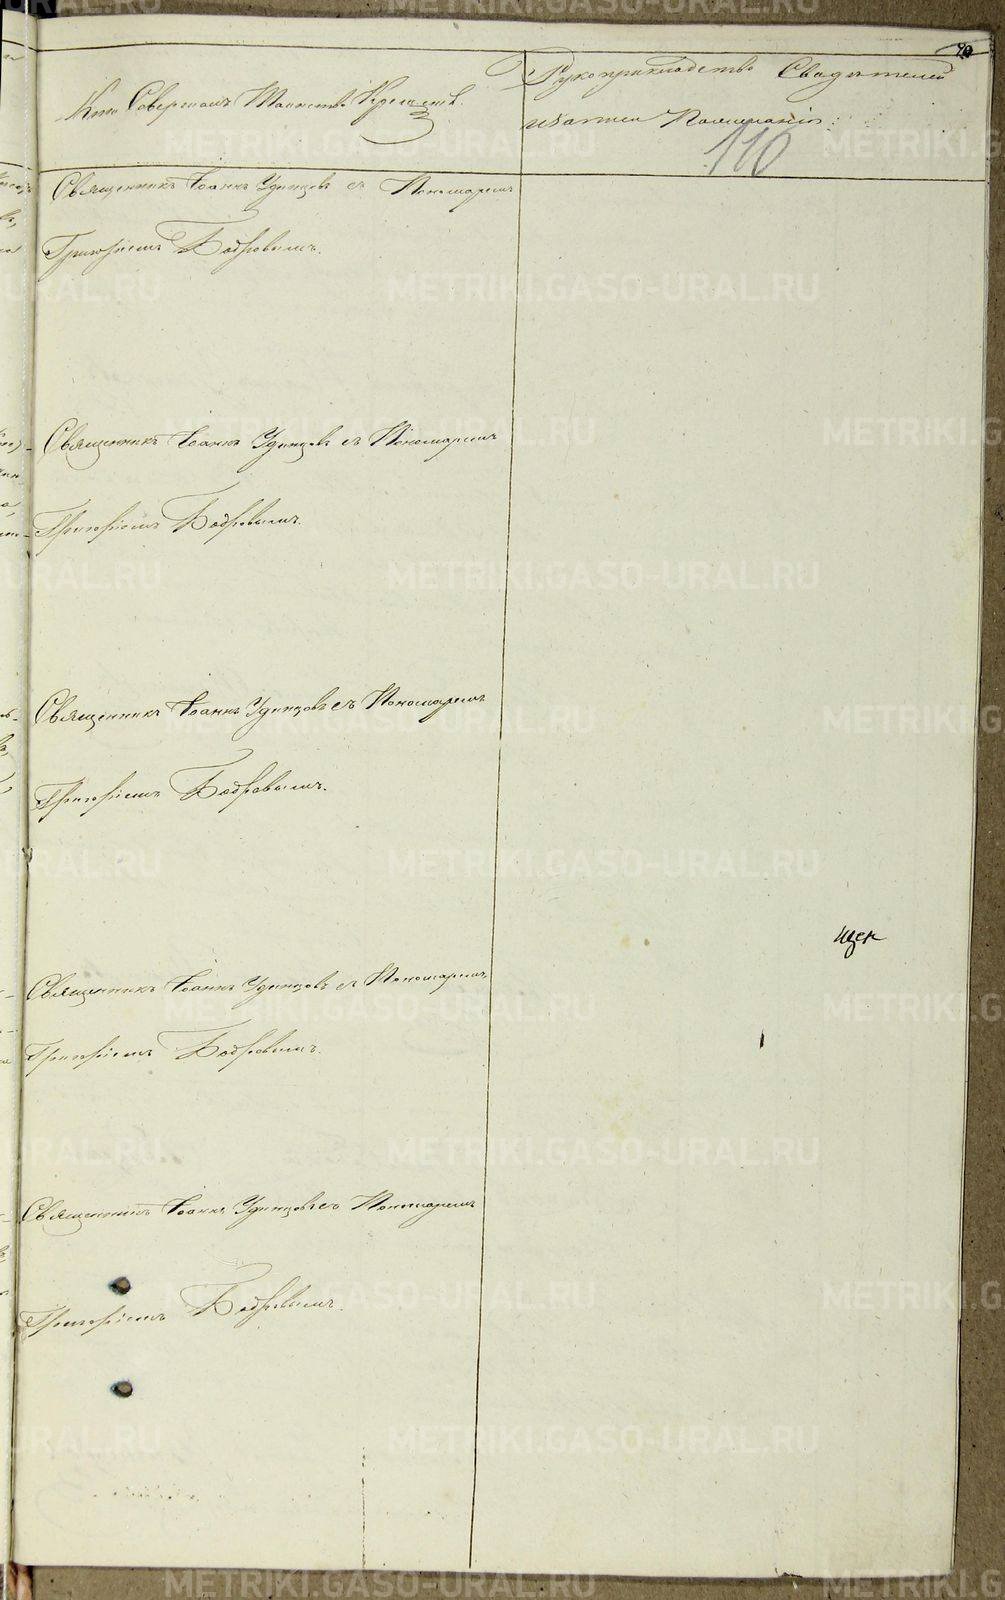 Кто Совершалъ Таинство Крещенія.
Рукоприкладство Свидѣтелей
записи Пожеланію.
110
Священникъ Іоаннъ Удинцовъ съ Пономаремъ
Григоріемъ Бобровымъ.
Священникъ Іоаннъ Удинцовъ съ Пономаремъ
Григоріемъ Бобровымъ.
Священникъ Іоаннъ Удинцовъ съ Пономаремъ
Григоріемъ Бобровымъ.
Священникъ Іоаннъ Удинцовъ съ Пономаремъ
Григоріемъ Бобровымъ.
Священникъ Іоаннъ Удинцовъ съ Пономаремъ
Григоріемъ Бобровымъ.
METRIKI.GASO-URAL.RU